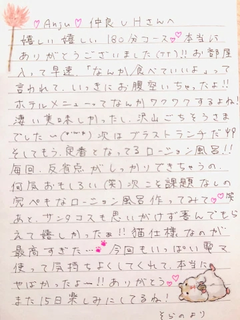 ♡Anju♡仲良しHさんへ
嬉しい嬉しい180分コース♡本当に
ありがとうございました(TT)!!お部屋
入って早速、「なんか食べていいよ」って
言われて、いっきにお腹空いちゃったよ!!
ホテルメニューってなんかワクワクするよね!
凄い美味しかったし、沢山ごちそうさま
でした〜(*^^*)次はブラストランチだね!
そしてもう、定番となってるローション風呂!!
毎回、反省点がしっかりできちゃうの、
何気おもしろい(笑)次こそ課題なしの
完ぺきなローション風呂作ってみて♡笑
あと、サンタコスも思いがけず喜んでもら
えて嬉しかったぁ!!猫仕様なのが
最高すぎた…今回もいっぱい電マ
使って気持ちよくしてくれて、本当に
やばかったよー!!ありがとう♡
また15日楽しみにしてるね!
そらのより